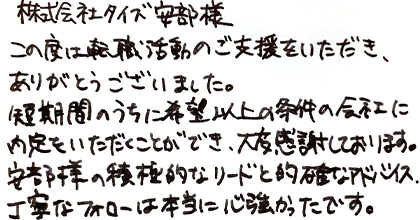 株式会社タイズ 安部様
この度は転職活動のご支援をいただき、
ありがとうございました。
短期間のうちに希望以上の条件の会社に
内定をいただくことができ、大変感謝しております。
安部様の積極的なリードと的確なアドバイス、
丁寧なフォローは本当に心強かたです。